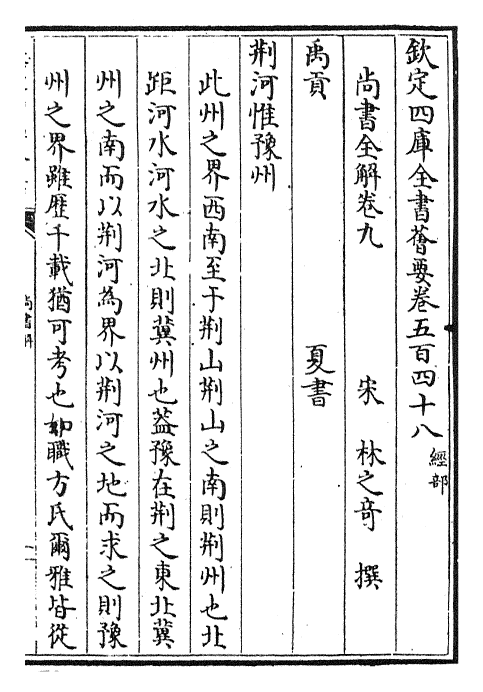 欽定四庫全書薈要卷五百四十八經部
尚書全解卷九　宋　林之奇　撰
禹貢　夏書
荆河惟豫州
此州之界西南至于荆山荆山之南則荆州也北
距河水河水之北則冀州也蓋豫在荆之東北冀
州之南而以荆河為界以荆河之地而求之則豫
州之界雖歷千載猶可考也如職方氏爾雅皆從
尚書解